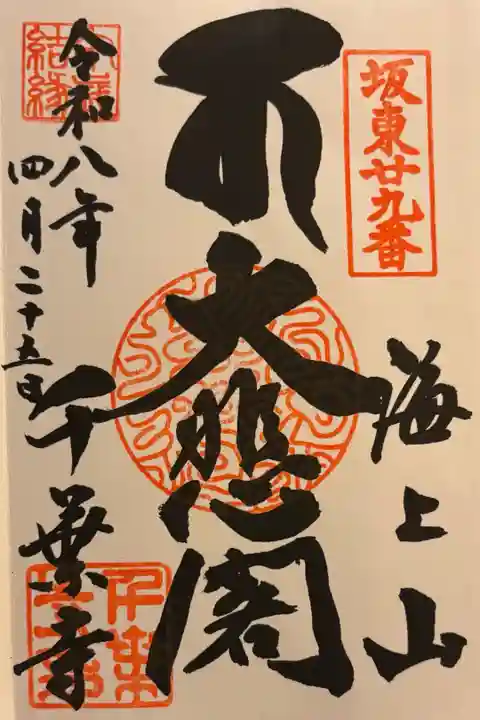 坂東廿九番
海上山
大悲閣
令和八年
四月二十五日
千葉寺
結縁